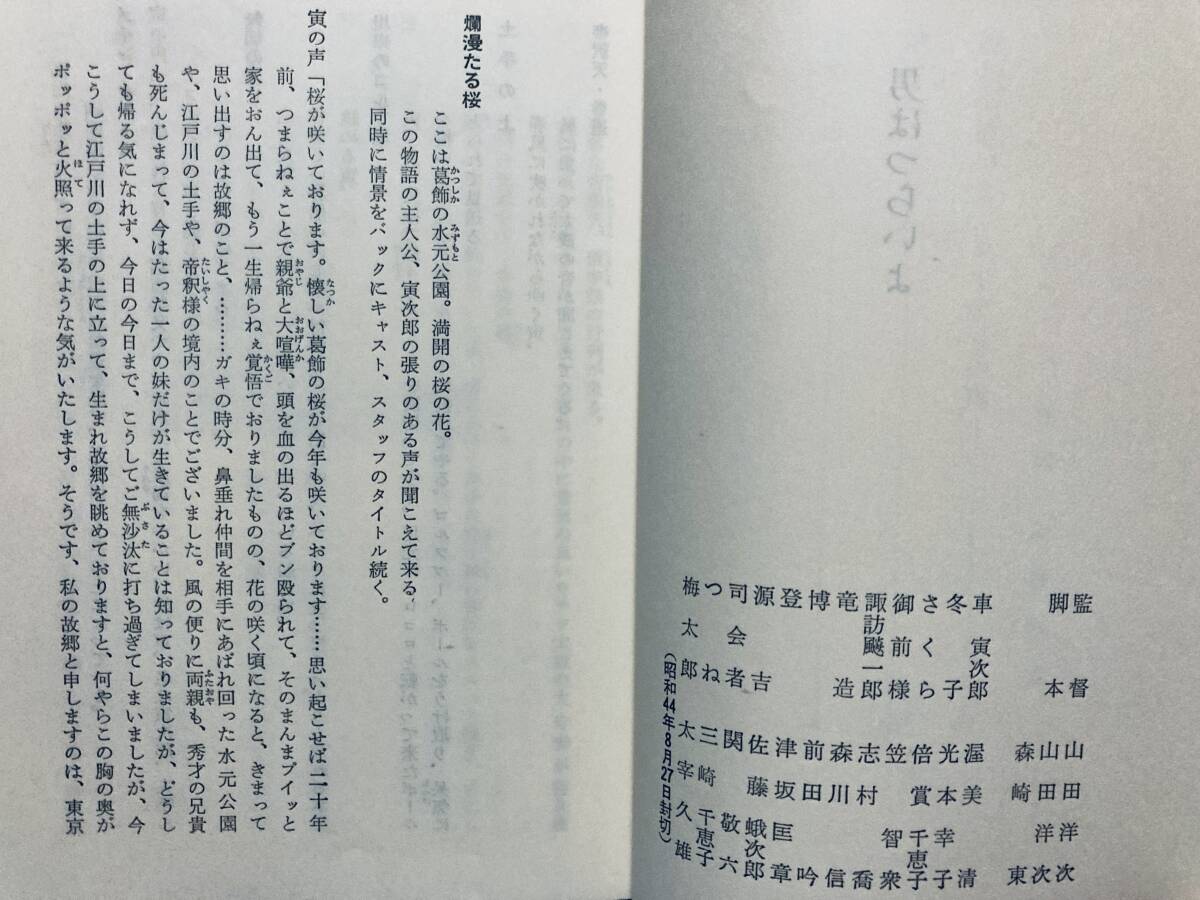 男はつらいよ
監督 山田洋次
脚本 山田洋次
森崎東
車寅次郎 渥美清
冬子 光本幸子
さくら 倍賞千恵子
御前様 笠智衆
諏訪飈一郎 志村喬
竜造 森川信
博 前田吟
登 津坂匡章
源吉 佐藤蛾次郎
司会者 関敬六
つね 三崎千恵子
梅太郎 太宰久雄
(昭和44年8月27日封切)
爛漫たる桜
ここは葛飾の水元公園。満開の桜の花。
この物語の主人公、寅次郎の張りのある声が聞こえて来る、
同時に情景をバックにキャスト、スタッフのタイトル続く。
寅の声「桜が咲いております。懐しい葛飾の桜が今年も咲いております……思い起こせば二十年
前、つまらねぇことで親爺と大喧嘩、頭を血の出るほどブン殴られて、そのまんまプイッと
家をおん出て、もう一生帰らねぇ覚悟でおりましたものの、花の咲く頃になると、きまって
思い出すのは故郷のこと、………ガキの時分、鼻垂れ仲間を相手にあばれ回った水元公園
や、江戸川の土手や、帝釈様の境内のことでございました。風の便りに両親も、秀才の兄貴
も死んじまって、今はたった一人の妹だけが生きていることは知っておりましたが、どうし
ても帰る気になれず、今日の今日まで、こうしてご無沙汰に打ち過ぎてしまいましたが、今
こうして江戸川の土手の上に立って、生まれ故郷を眺めておりますと、何やらこの胸の奥が
ポッポッと火照って来るような気がいたします。そうです、私の故郷と申しますのは、東京